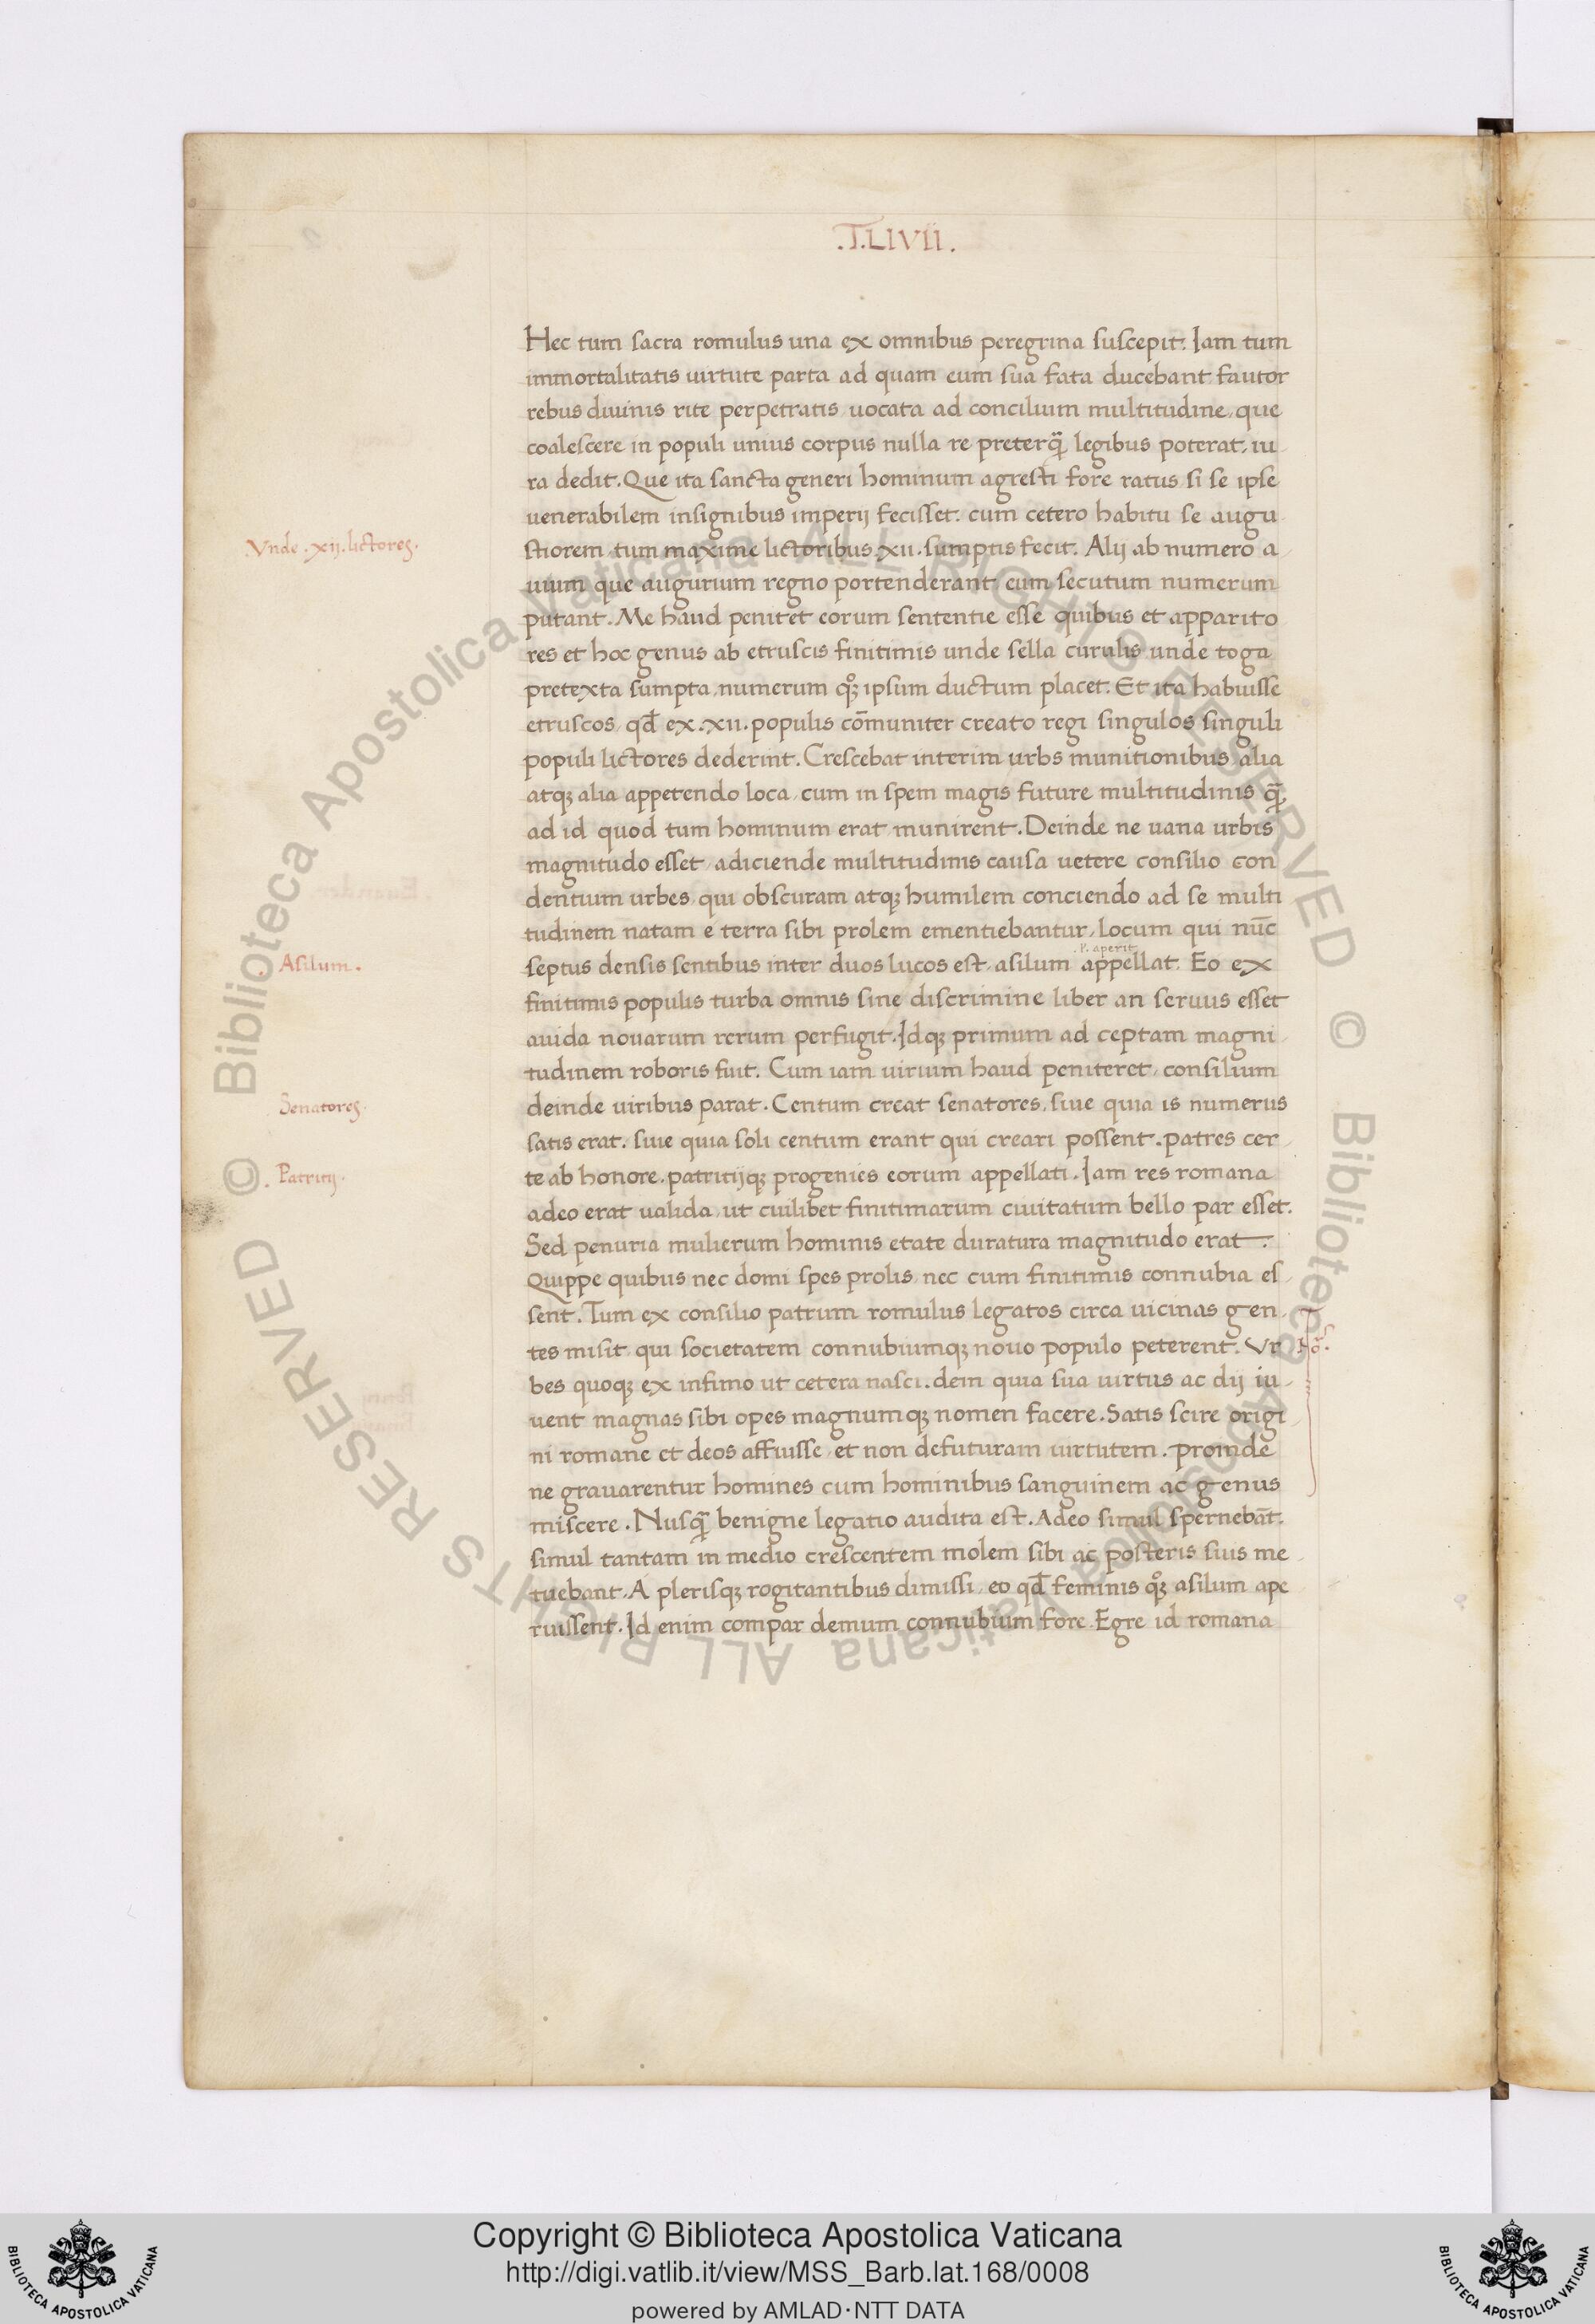 .T.LIVII.
Hec tum sacra romulus una ex omnibus peregrina suscepit. Iam tum
immortalitatis uirtute parta ad quam eum sua fata ducebant fautor
rebus diuinis rite perpetratis uocata ad concilium multitudine, que
coalescere in populi unius corpus nulla re preterq̃ legibus poterat, iu
ra dedit. Que ita sancta generi hominum agresti fore ratus si se ipse
uenerabilem insignibus imperij fecisset. cum cetero habitu se augu
.Vnde .xij. lictores.
stiorem tum maxime lictoribus .xii. sumptis fecit. Alij ab numero a
uium que augurium regno portenderant eum secutum numerum
putant. Me haud penitet eorum sententie esse quibus et apparito
res et hoc genus ab etruscis finitimis unde sella curulis unde toga
pretexta sumpta, numerum qꝫ ipsum ductum placet. Et ita habuisse
etruscos, qđ ex .xii. populis cōmuniter creato regi singulos singuli
populi lictores dederint. Crescebat interim urbs munitionibus alia
atqꝫ alia appetendo loca, cum in spem magis future multitudinis q̃
ad id quod tum hominum erat munirent. Deinde ne uana urbis
magnitudo esset, adiciende multitudinis causa uetere consilio con
dentium urbes, qui obscuram atqꝫ humilem conciendo ad se multi
tudinem natam e terra sibi prolem ementiebantur, locum qui nūc
P. aperit
. Asilum.
septus densis sentibus inter duos lucos est, asilum appellat. Eo ex
finitimis populis turba omnis sine discrimine liber an seruus esset
auida nouarum rerum perfugit. Idqꝫ primum ad ceptam magni
tudinem roboris fuit. Cum iam uirium haud peniteret, consilium
Senatores.
deinde uiribus parat. Centum creat senatores, siue quia is numerus
satis erat. siue quia soli centum erant qui creari possent. patres cer
. Patritij.
te ab honore. patritijqꝫ progenies eorum appellati. Iam res romana
adeo erat ualida, ut cuilibet finitimarum ciuitatum bello par esset.
Sed penuria mulierum hominis etate duratura magnitudo erat.
Quippe quibus nec domi spes prolis nec cum finitimis connubia es
sent. Tum ex consilio patrum romulus legatos circa uicinas gen
tes misit qui societatem connubiumqꝫ nouo populo peterent. Vr
bes quoqꝫ ex infimo ut cetera nasci. dein quia sua uirtus ac dij iu
uent magnas sibi opes magnumqꝫ nomen facere. Satis scire origi
ni romane et deos affuisse et non defuturam uirtutem. proinde
ne grauarentur homines cum hominibus sanguinem ac genus
miscere. Nusq̃ benigne legatio audita est. Adeo simul spernebāt.
simul tantam in medio crescentem molem sibi ac posteris suis me
tuebant. A plerisqꝫ rogitantibus dimissi, eo qđ feminis qꝫ asilum ape
ruissent. Id enim compar demum connubium fore. Egre id romana
© Biblioteca Apostolica Vaticana ALL RIGHTS RESERVED © Biblioteca Apostolica Vaticana ALL RIGHTS RESERVED
Copyright © Biblioteca Apostolica Vaticana
http://digi.vatlib.it/view/MSS_Barb.lat.168/0008
powered by AMLAD·NTT DATA
BIBLIOTECA APOSTOLICA VATICANA
BIBLIOTECA APOSTOLICA VATICANA